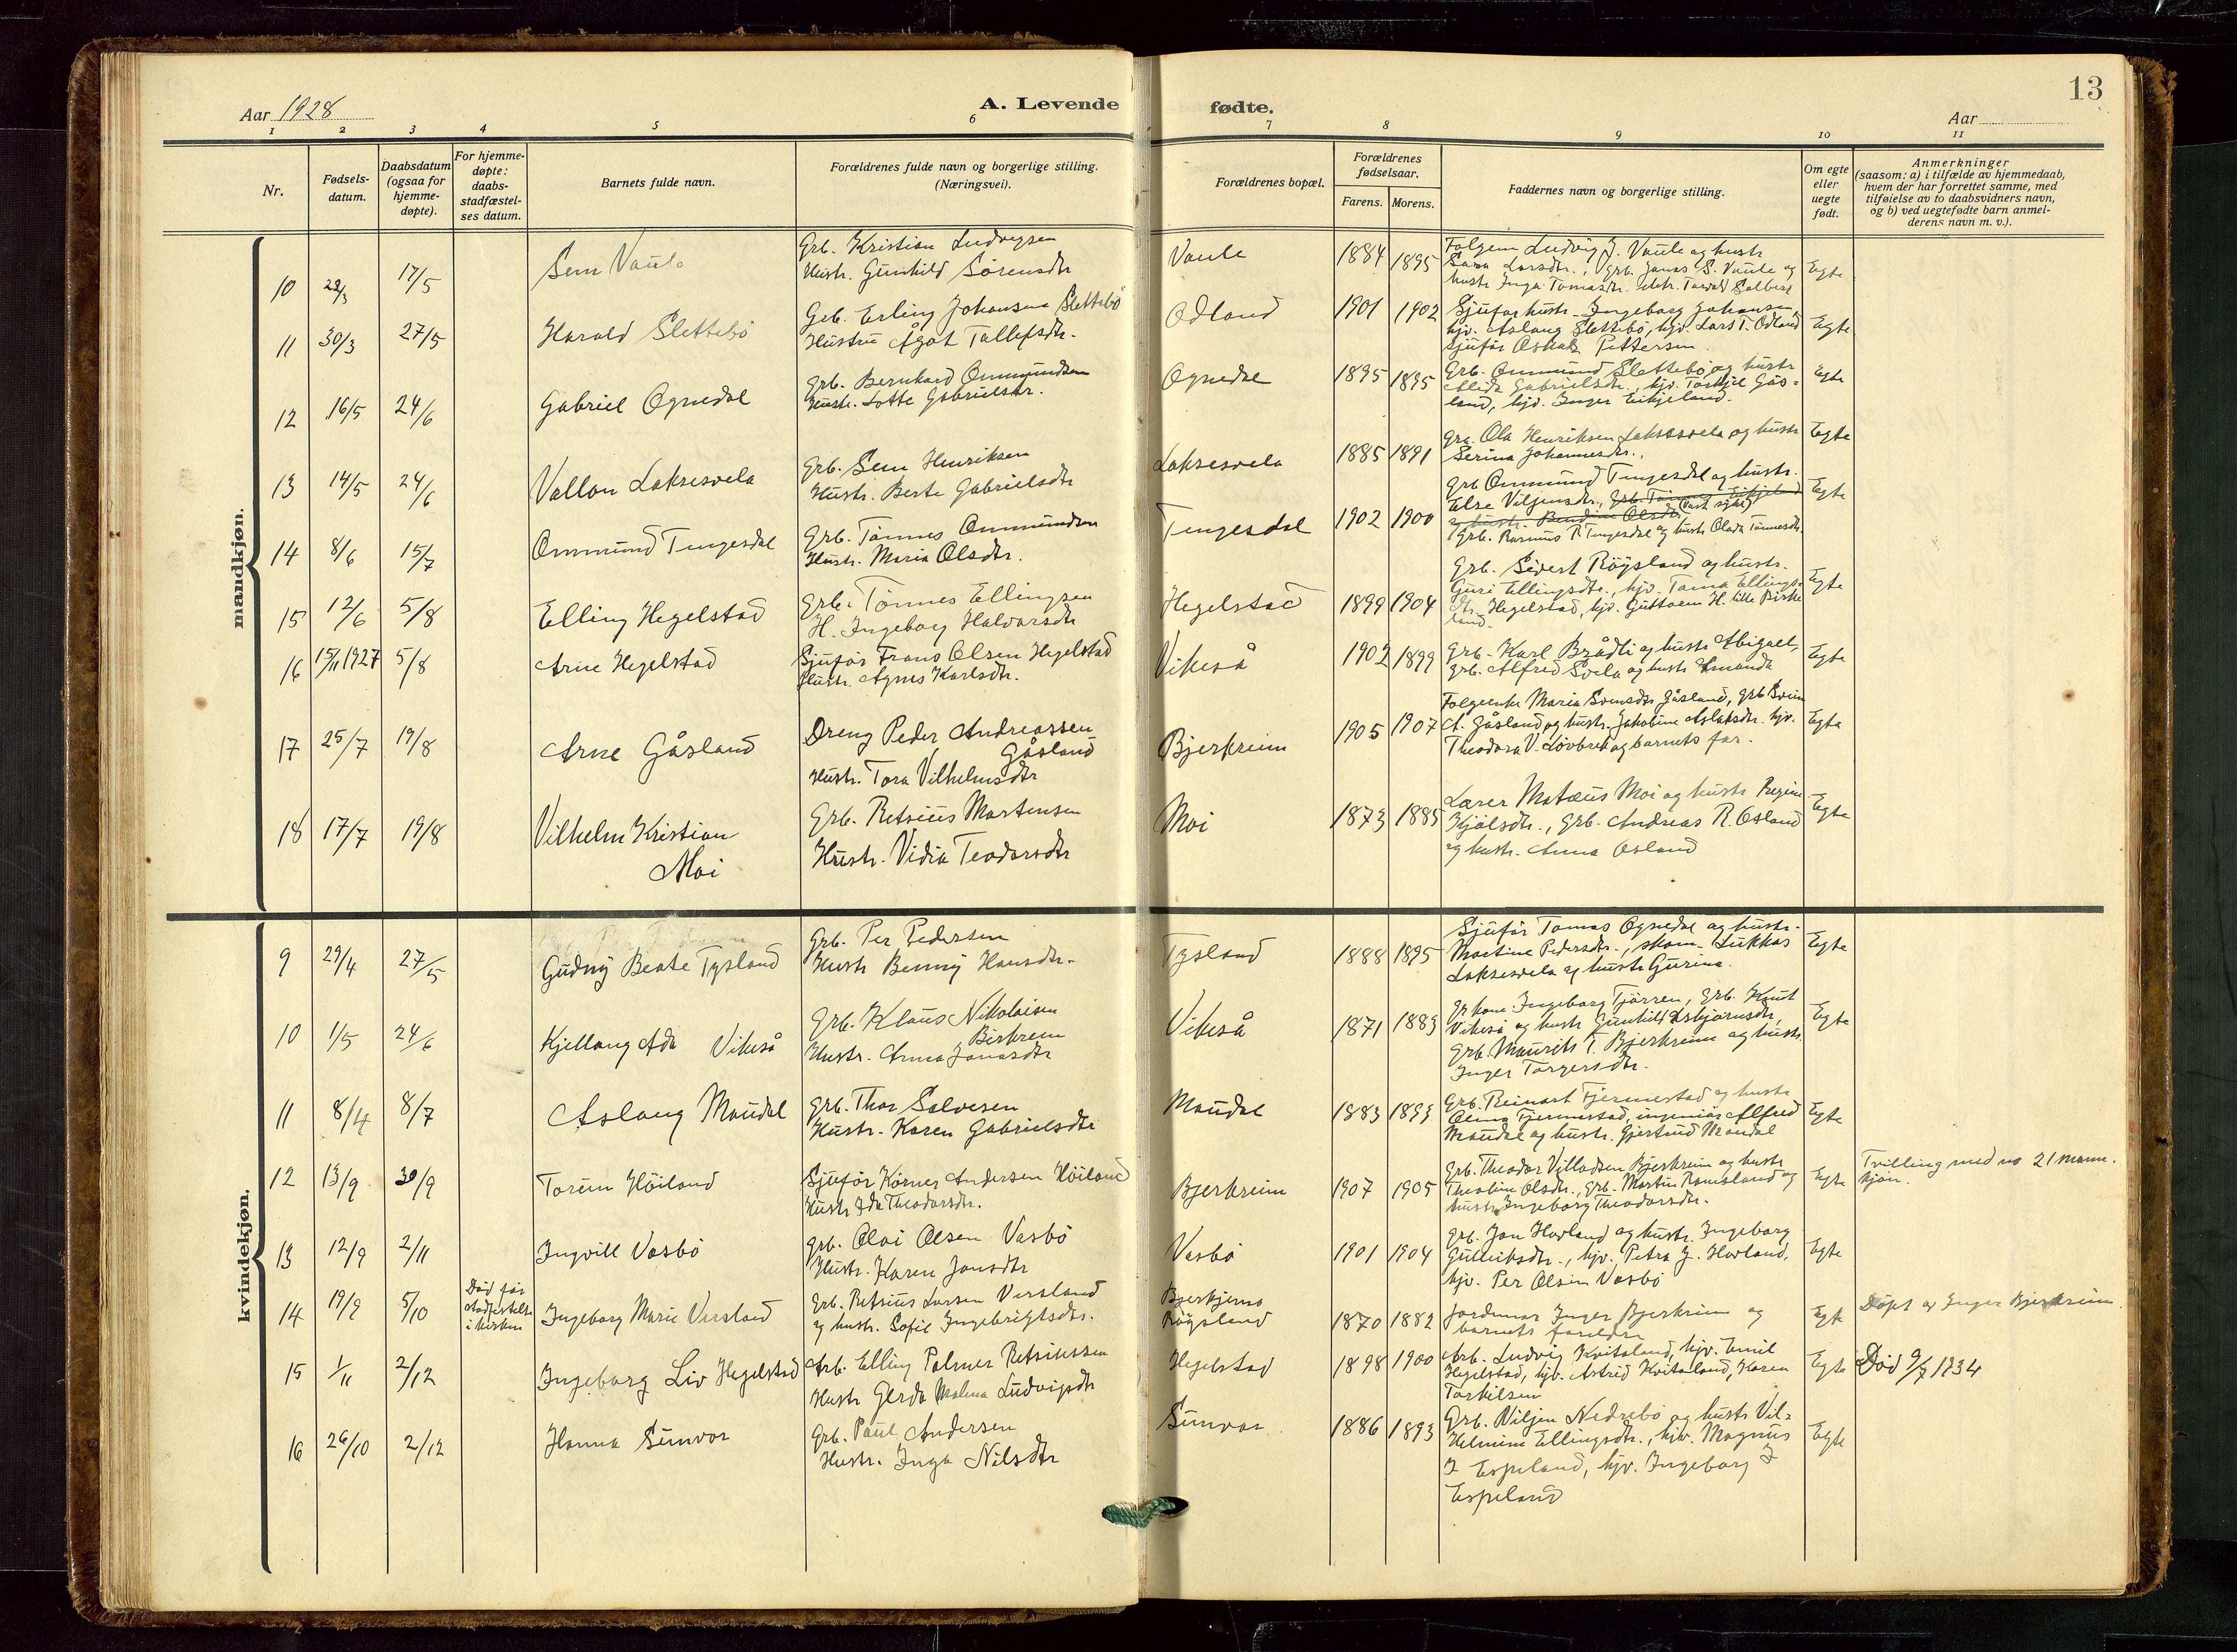 Aar 1928
A. Levende
fødte.
13
Aar
1 2 3 4 5 6 7 8 9 10 11
Nr.
Fødsels-
datum.
Daabsdatum
(ogsaa for
hjemme-
døpte).
For hjemme-
døpte:
daabs-
stadfæstel-
ses datum.
Barnets fulde navn.
Forældrenes fulde navn og borgerlige stilling.
(Næringsvei).
Forældrenes bopæl.
Forældrenes
fødselsaar.
Farens. Morens.
Faddernes navn og borgerlige stilling.
Om egte
eller
uegte
født.
Anmerkninger
(saasom: a) i tilfælde av hjemmedaab,
hvem der har forrettet samme, med
tilføielse av to daabsvidners navn,
og b) ved uegtefødte barn anmel-
derens navn m. v.).
mandkjøn.
10 28/3 17/5 Sem Vaule
Grb. Kristian Ludvigsen
Hustr. Gunhild Sørensdtr
Vaule 1884 1895
Folgem Ludvig J. Vaule og hustr
Sara Larsdtr., grb. Jonas S. Vaule og
hustr Inga Tomasdtr.
Egte
11 30/3 27/5 Harald Slettebö
Grb. Erling Johansen Slettebö
Hustru Ågot Tollefsdtr.
Odland 1901 1902
Sjuforhustr. Ingeborg Johansen,
hjv. Aslaug Slettebö, hjv. Lars T. Odland
sjuför Oskar Pettersen.
Egte
12 16/5 24/6 Gabriel Ognedal
Grb. Bernhard Ommundsen
Hustr. Lotte Gabrielsdtr.
Ognedal 1895 1895
Grb. Ommund Slettebö og hustr
Alida Gabrielsdtr., hjv. Torkjel Gås-
land, hjv. Inger Eikjeland.
Egte
13 14/5 24/6 Vallon Laksesvela
Grb. Sem Henriksen
Hustr. Berte Gabrielsdtr
Laksesvela 1885 1891
Grb. Ola Henriksen Laksesvela og hustr
Serina Johannesdtr.,
Egte
14 8/6 15/7 Ommund Tengesdal
Grb. Tönnes Ommundsen
Hustr. Maria Olsdtr.
Tengesdal 1902 1900
Grb Ommund Tengesdal og hustr.
Else Viljensdtr., Grb. Tönnes Eikjeland
og hustr. Bendine Olsdtr (vart sjuk)
Grb. Rasmus R Tengesdal og hustr Olada Tönnesdtr.
Egte
15 12/6 5/8 Elling Hegelstad
Grb. Tönnes Ellingsen
H. Ingeborg Halvorsdtr
Hegelstad 1899 1904
Grb. Sivert Röysland og hustr.
Guri Ellingsdtr., hjv. Toma Ellings-
dtr. Hegelstad, hjv. Guttorm H. lille Birke
land.
Egte
16 15/11 1927 5/8 Arne Hegelstad
Sjuför Frans Olsen Hegelstad
Hustr. Agnes Karlsdtr.
Vikeså 1902 1899
Grb. Karl Brådli og hustr Abigael,
grb. Alfred Svela og hustr Amanda
Egte
17 25/7 19/8 Arne Gåsland
Dreng Peder Andreassen
Gåsland
Hustr. Tora Vilhelmsdtr
Bjerkreim 1905 1907
Folgeenke Maria Svensdtr Gåsland, grb Svein
A. Gåsland og hustr. Jakobine Aslaksdtr. hjv.
Theodora V. Lövbrek og barnets far.
Egte
18 17/7 19/8 Vilhelm Kristian
Moi
Grb. Retsius Mortensen
Hustr. Vidia Teodorsdtr
Moi 1873 1885
Lærer Matæus Moi og hustr Regine
Kjölsdtr., Grb. Andreas R. Osland
og hustr. Anna Osland
Egte
kvindekjøn.
9 29/4 27/5 Gudny Beate Tysland
Grb. Per Pedersen
Hustr Benny Hansdtr.
Tysland 1888 1895
Sjuför Tomas Ognedal og hustr.
Martine Pedersdtr., skom. Lukkas
Laksesvela og hustr Gurina.
Egte
10 1/5 24/6 Kjellaug Ada Vikeså
Grb. Klaus Nikolaisen
Birkrem
Hustr. Anna Jonasdtr
Vikeså 1871 1883
Grkone Ingeborg Tjörren, Grb. Knut
Vikeså og hustr Gunhild Asbjörnsdtr,
Grb. Maurits T. Bjerkreim og hustr.
Inger Torgersdtr.
Egte
11 8/4 8/7 Aslaug Maudal
Grb. Thor Salvesen
Hustr. Karen Gabrielsdtr
Maudal 1883 1893
Grb. Reinart Fjermestad og hustr
Olina Fjermestad, ingeniör Alfred
Maudal og hustr. Gjertrud Maudal
Egte
12 13/9 30/9 Torun Höiland
Sjuför Körner Andersen Höiland
Hustr Ida Theodorsdtr.
Bjerkreim 1907 1905
Grb. Theodor Villadsen Bjerkreim og hustr
Theoline Olsdtr., grb. Martin Ramsland og
hustr. Ingeborg Theodorsdtr.
Egte
Tvilling med no 21 mann.
kjön.
13 12/9 2/11 Ingvill Vasbö
Grb. Olai Olsen Vasbö
Hustr. Karen Jonsdtr
Vasbö 1901 1904
Grb. Jon Hovland og hustr. Ingeborg
Gulleiksdtr., hjv. Petra J. Hovland,
hjv. Per Olsen Vasbö
Egte
14 19/9 5/10 Död för
stadfestelse
i kirken
Ingeborg Marie Versland
Grb. Retsius Larsen Versland
og hustr. Sofie Ingebrigtsdtr.
Röysland 1870 1882
Jordmor Inger Bjerkreim og
barnets foreldre
Egte
Döpt av Inger Bjerkreim.
15 1/11 2/12 Ingeborg Liv Hegelstad
Arb. Elling Palmer Retsiussen
Hustr Gerda Malena Ludvigsdtr
Hegelstad 1898 1900
Arb. Ludvig Kvitaland, hjv. Emil
Hegelstad, hjv. Astrid Kvitaland, Karen
Torkilsen
Egte
Död 9/7 1934
16 26/10 2/12 Hanna Sunvor
Grb. Paul Andersen
Hustr. Inga Nilsdtr
Sunvor 1886 1893
Grb. Viljen Nedrebö og hustr Vil-
helmine Ellingsdtr., hjv. Magnus
J Espeland, hjv. Ingeborg J
Espeland
Egte